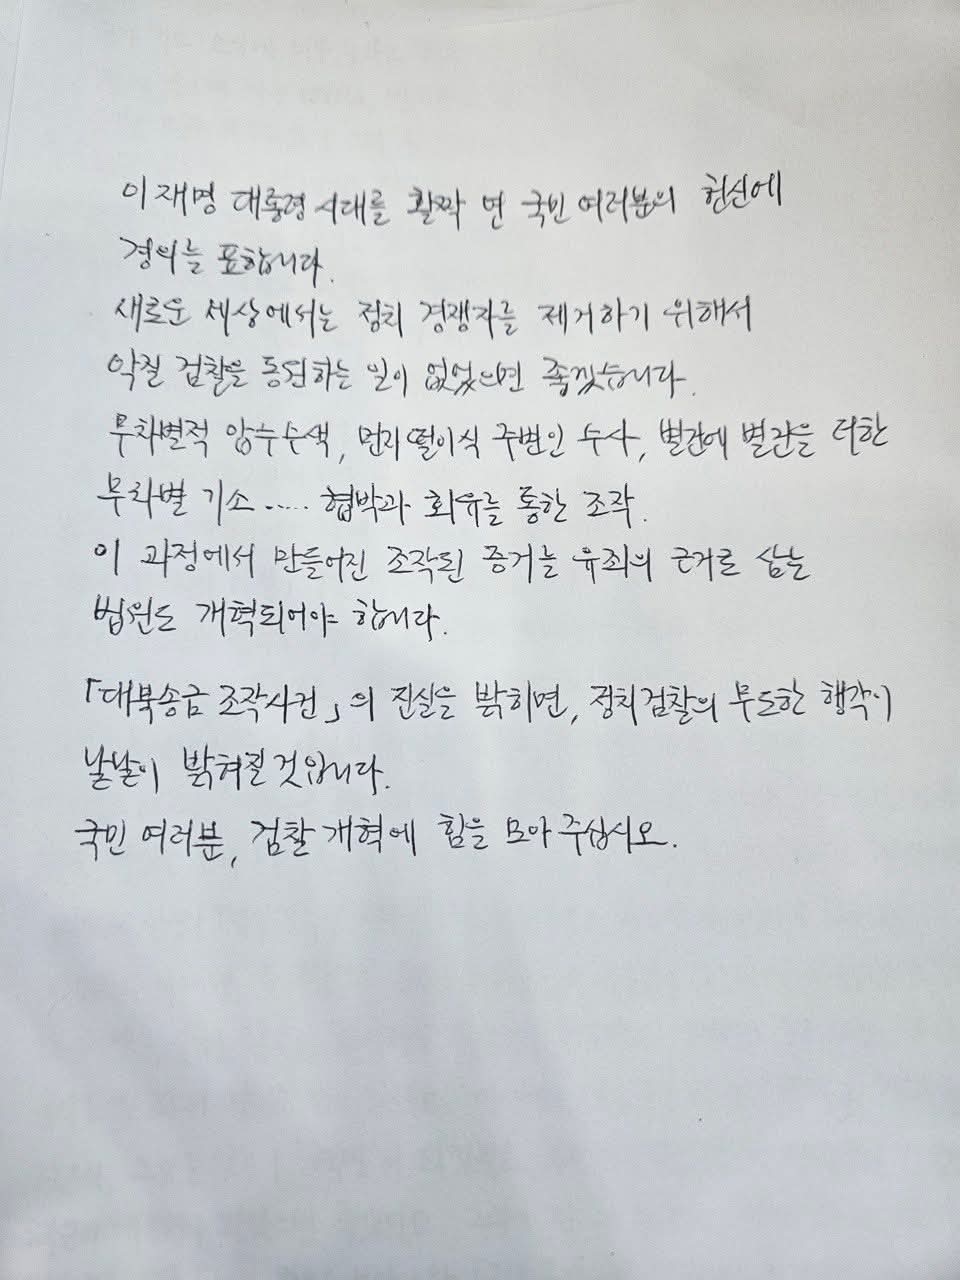 이재명 대통령 시대를 활짝 연 국민 여러분의 헌신에
경의를 표합니다.
새로운 세상에서는 정치 경쟁자를 제거하기 위해서
악질 검찰을 동원하는 일이 없었으면 좋겠습니다.
무차별적 압수수색, 먼지떨이식 주변인 수사, 별건에 별건을 더한
무차별 기소..... 협박과 회유를 통한 조작.
이 과정에서 만들어진 조작된 증거를 유죄의 근거로 삼는
법원도 개혁되어야 합니다.
「대북송금 조작사건」의 진실을 밝히면, 정치검찰의 무도한 행각이
낱낱이 밝혀질 것입니다.
국민 여러분, 검찰개혁에 힘을 모아 주십시오.